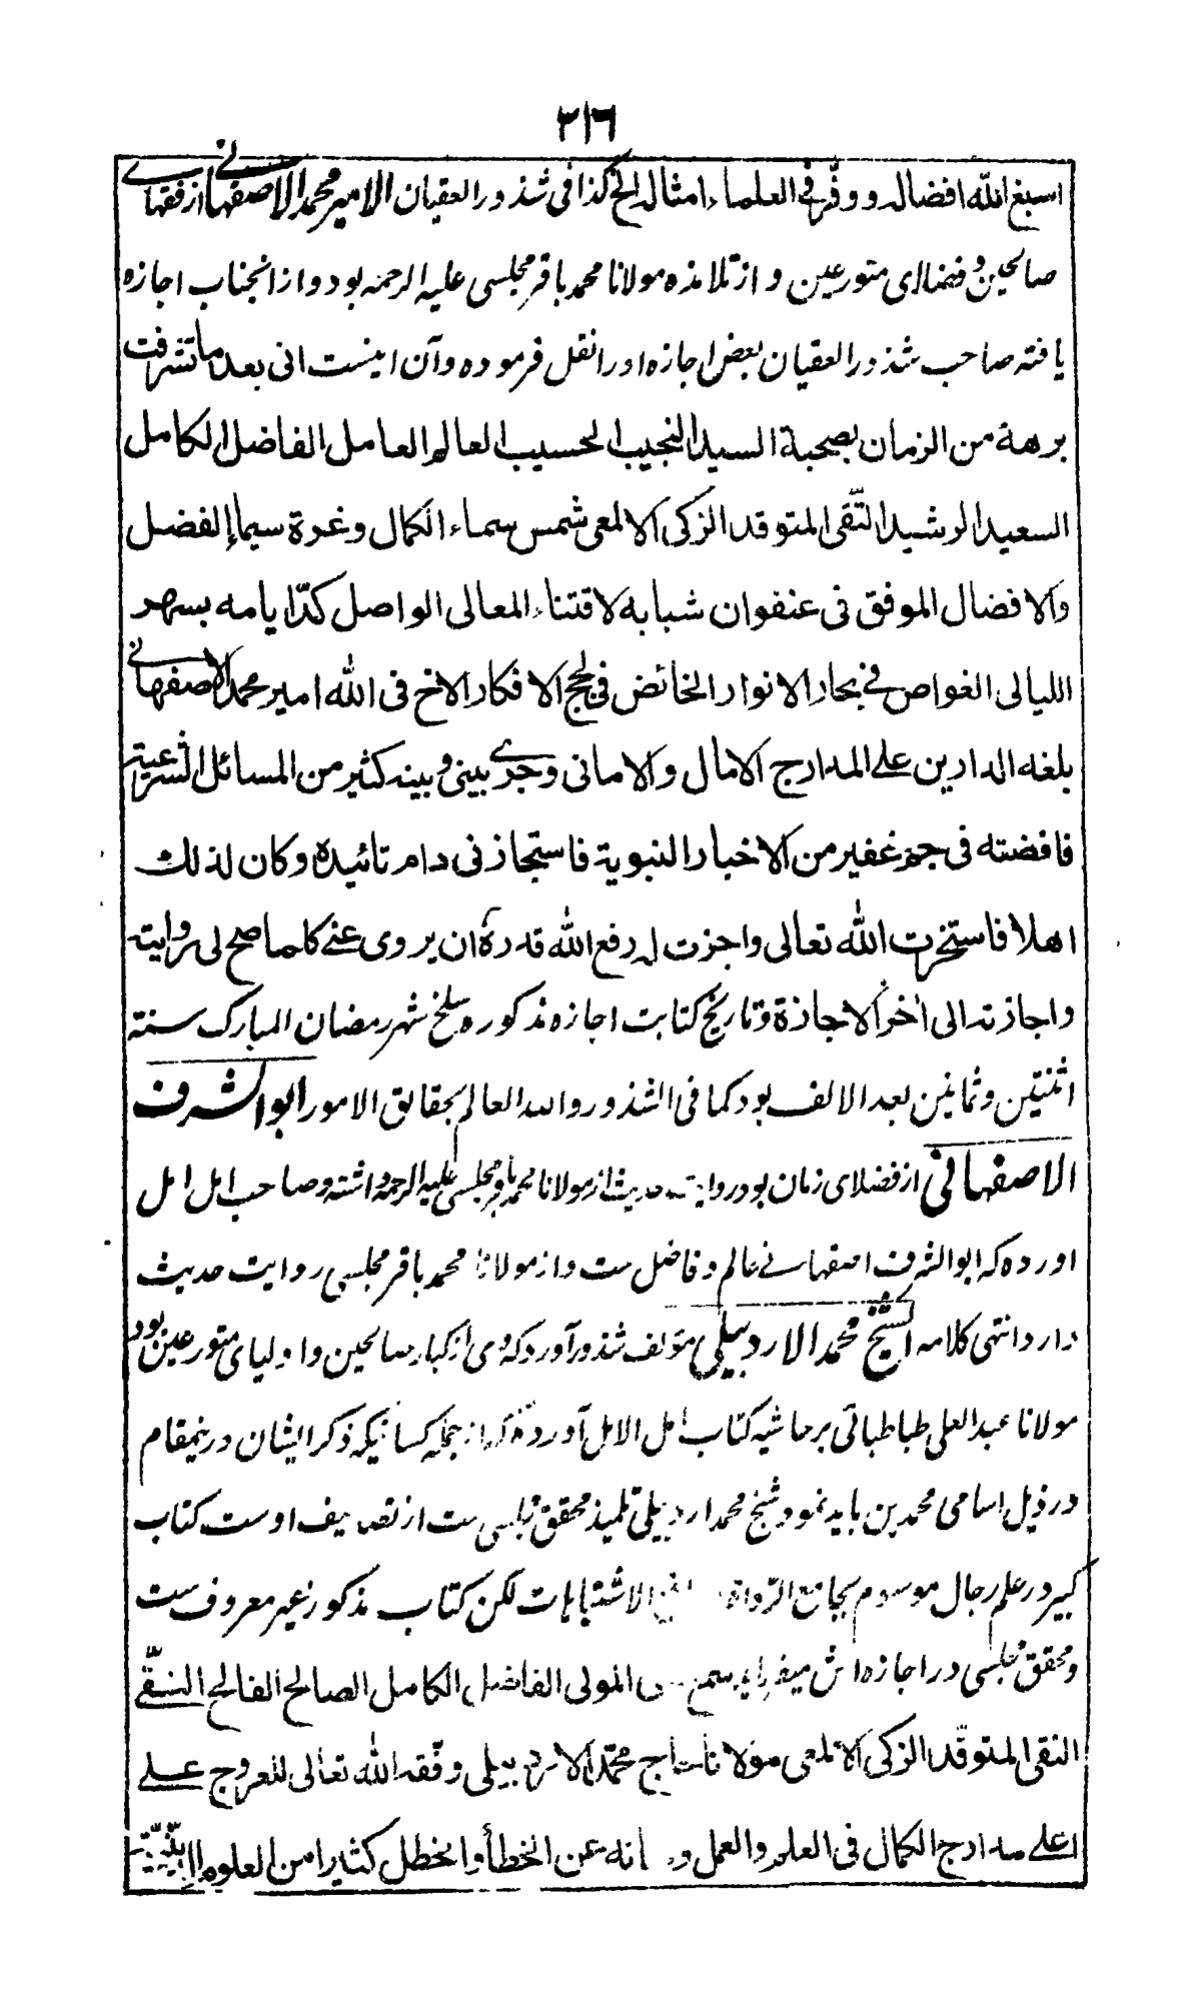 ۳۱۶
اسبغ الله افضاله ووفّر فی العلماء امثاله الخ کذا فی شذور العقیان الامیر محمد الاصفهانی از فقهای
صالحین و فضلای متورعین و از تلامذه مولانا محمد باقر مجلسی علیه الرحمه بود و از انجناب اجازه
یافته صاحب شذور العقیان بعض اجازه او را نقل فرموده و آن اینست انی بعد ما تشرفت
برهة من الزمان بصحبة السید النجیب الحسیب العالم العامل الفاضل الکامل
السعید الرشید التّقی المتوقد الزکی الالمعی شمس سماء الکمال وغرة سیماء الفضل
والافضال الموفق فی عنفوان شبابه لاقتناء المعالی الواصل کدّ ایامه بسهر
اللیالی الغواص فی بحار الانوار الخائض فی لجج الافکار الاخ فی الله امیر محمد الاصفهانی
بلغه الدارین علی المدارج الامال والامانی وجری بینی وبینه کثیر من المسائل الشرعیة
فافضته فی جم غفیر من الاخبار النبویة فاستجازنی دام تائیده وکان لذلک
اهلا فاستخرت الله تعالی واجزت له رفع الله قدره ان یروی عنی کلما صح لی روایته
واجازته الی اخر الاجازة وتاریخ کتابت اجازه مذکوره سلخ شهر رمضان المبارک سنة
اثنتین وثمانین بعد الالف بود کما فی الشذور والله العالم بحقائق الامور ابو الشرف
الاصفهانی از فضلای زمان بود روایت حدیث از مولانا محمد باقر مجلسی علیه الرحمه داشته وصاحب امل امل
اورده که ابو الشرف اصفهانی عالم و فاضل ست و از مولانا محمد باقر مجلسی روایت حدیث
دارد انتهی کلامه الشیخ محمد الاردبیلی مؤلف شذور آورد که وی از کبار صالحین و اولیای متورعین بود
مولانا عبد العلی طباطبائی بر حاشیه کتاب امل الامل آورده که از جمله کسانیکه ذکر ایشان درینمقام
در ذیل اسامی محمد بن باید نمود شیخ محمد اردبیلی تلمیذ محقق مجلسی ست از تصانیف اوست کتاب
کبیر در علم رجال موسوم بجامع الرّواة الاشتباهات لکن کتاب مذکور غیر معروف ست
و محقق مجلسی در اجازه اش میفرماید سمع المولی الفاضل الکامل الصالح الفالح التّقی
النقی المتوقّد الزکی الالمعی مولانا حاج محمّد الاردبیلی وفّقه الله تعالی للعروج علی
اعلی مدارج الکمال فی العلم والعمل و عن الخطأ والخطل کثیرا من العلوم الدّینیّة